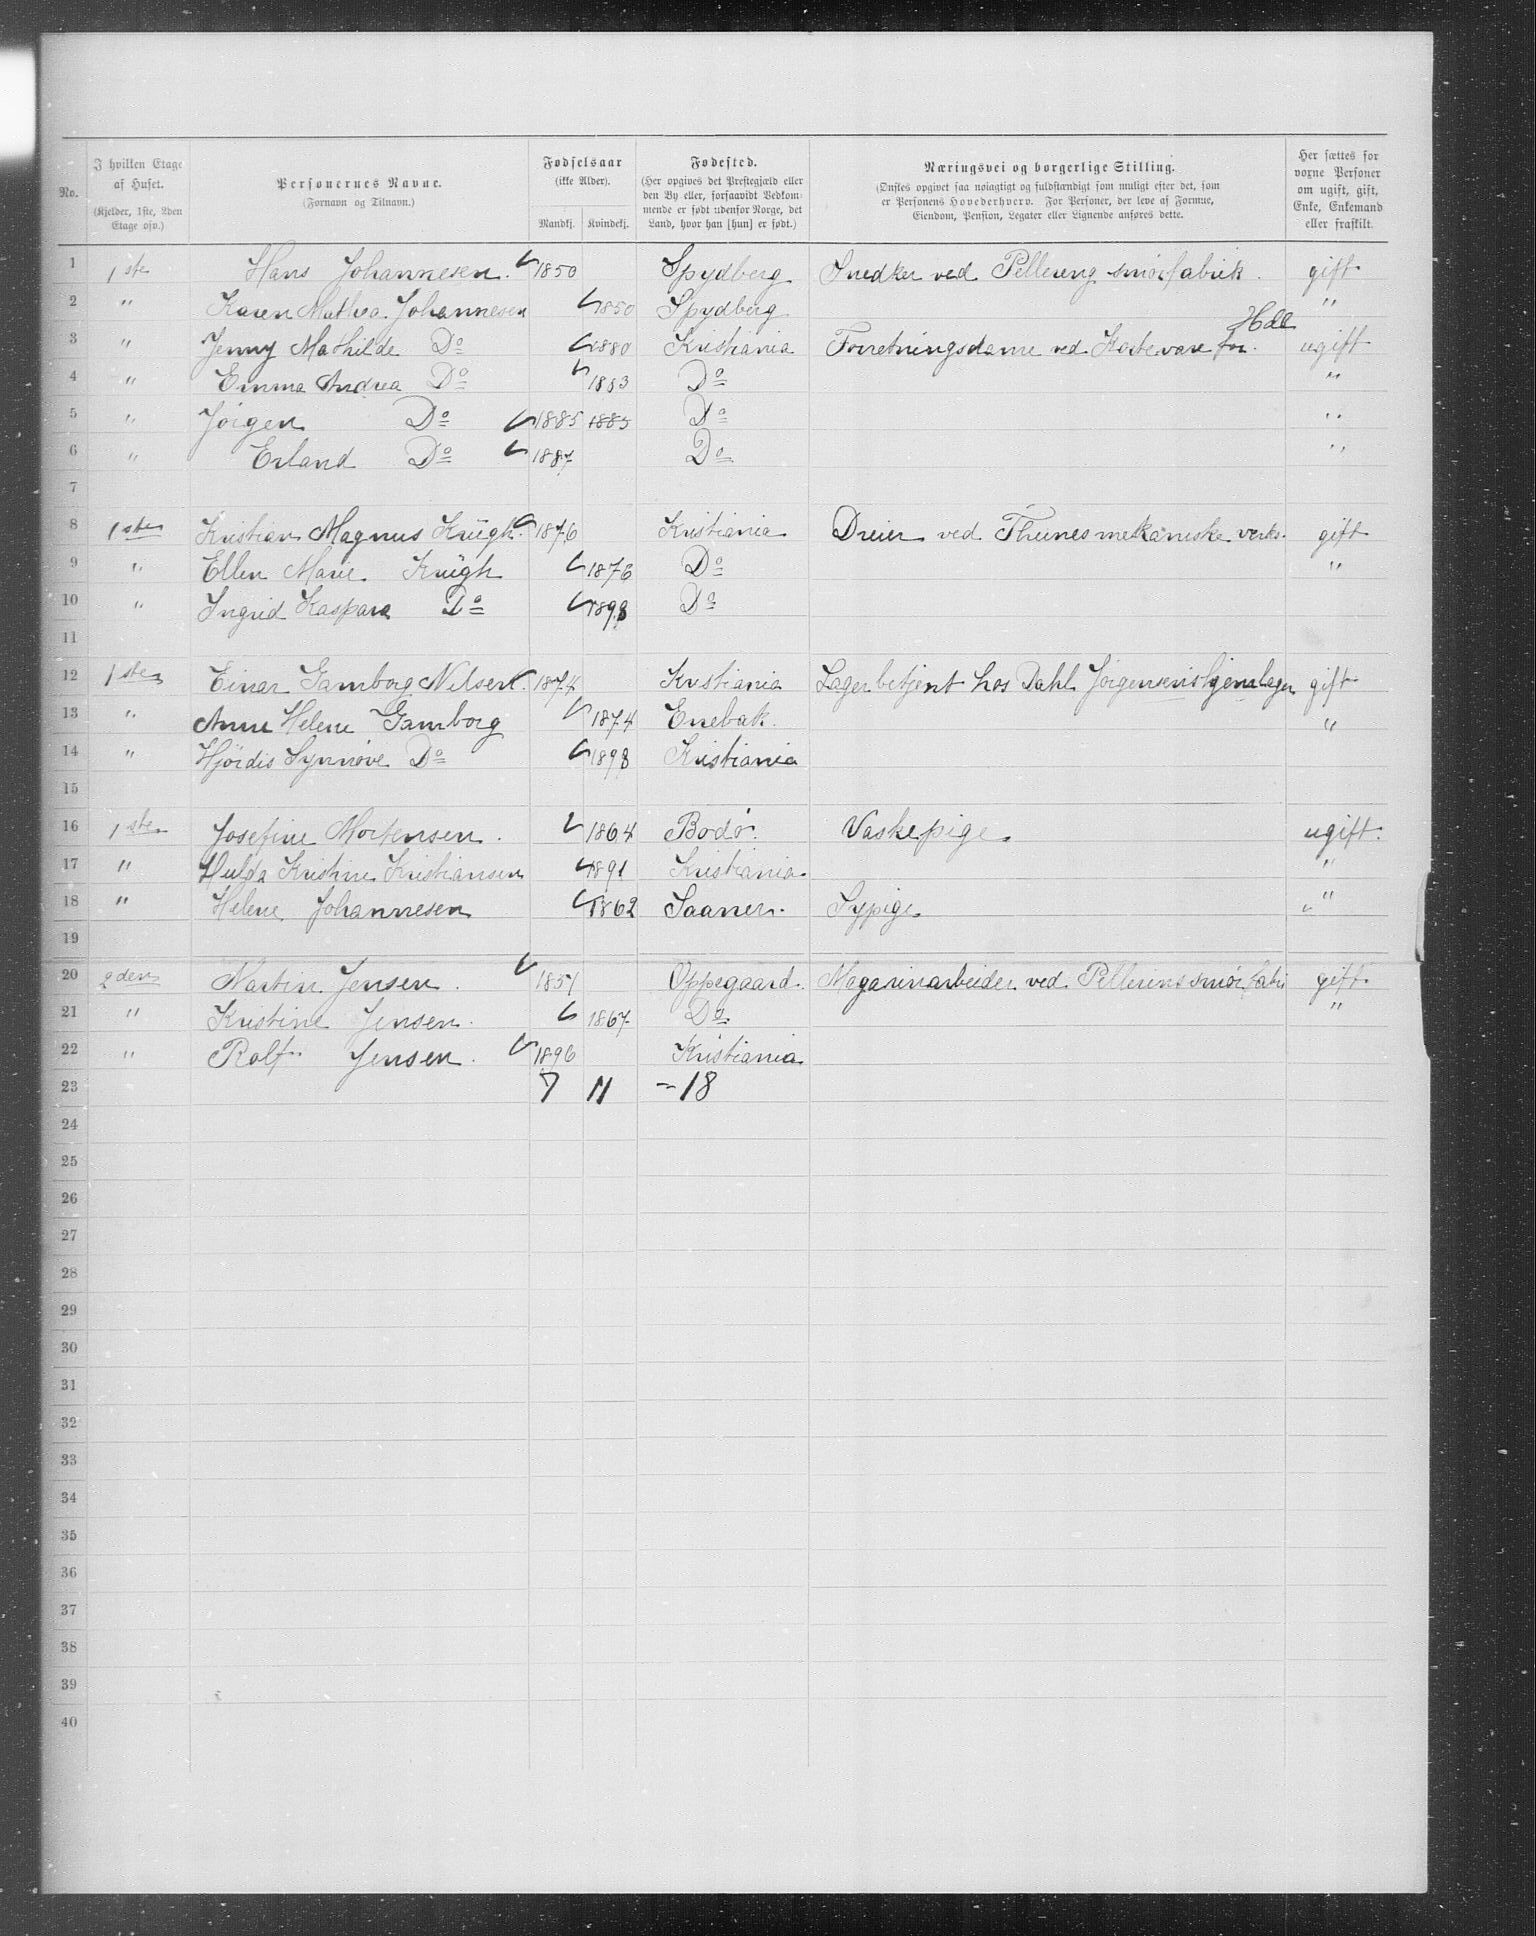 No.
I hvilken Etage af Huset.
(Kjelder, 1ste, 2den Etage osv.)
Personernes Navne.
(Fornavn og Tilnavn.)
Fødselsaar
(ikke Alder).
Mandkj. Kvindekj.
Fødested.
(Her opgives det Prestegjæld eller den By eller, forsaavidt Vedkommende er født udenfor Norge, det Land, hvor han [hun] er født.)
Næringsvei og borgerlige Stilling.
(Ønskes opgivet saa nøiagtigt og fuldstændigt som muligt efter det, som er Personens Hovederhverv. For Personer, der leve af Formue, Eiendom, Pension, Legater eller Lignende anføres dette.
Her sættes for voxne Personer om ugift, gift, Enke, Enkemand eller fraskilt.
1 1ste Hans Johannesen. 1850 Spydberg Snedker ved Pellerens smørfabrik. gift
2 " Karen Mathea Johannesen 1850 Spydberg "
3 " Jenny Mathilde Do 1880 Kristiania Forretningsdame ved Kortevare for. Hdl ugift
4 " Emma Andrea Do 1883 Do "
5 " Jørgen Do 1885 1885 Do "
6 " Erland Do 1887 Do "
7
8 1ste Kristian Magnus Krügh. 1876 Kristiania Dreier ved Thunes mekaniske verks. gift
9 " Ellen Marie Krügh 1876 Do "
10 " Ingrid Kaspara Do 1898 Do
11
12 1ste Einar Gamborg Nilsen. 1874 Kristiania Lagerbetjent hos Dahl Jørgensens lager gift
13 " Anne Helene Gamborg 1874 Enebak. "
14 " Hjørdis Synnøve Do 1898 Kristiania
15
16 1ste Josefine Mortensen. 1864 Bodø. Vaskepige. ugift.
17 " Hulda Kristine Kristiansen 1891 Kristiania. "
18 " Helene Johannesen 1862 Saaner. Sypige. "
19
20 2den Martin Jensen. 1851 Oppegaard. Magarinarbeider ved Pellerens smørfabri gift.
21 " Kristine Jensen. 1867. Do. "
22 " Rolf Jensen. 1896 Kristiania
23 7 11 =18
24
25
26
27
28
29
30
31
32
33
34
35
36
37
38
39
40